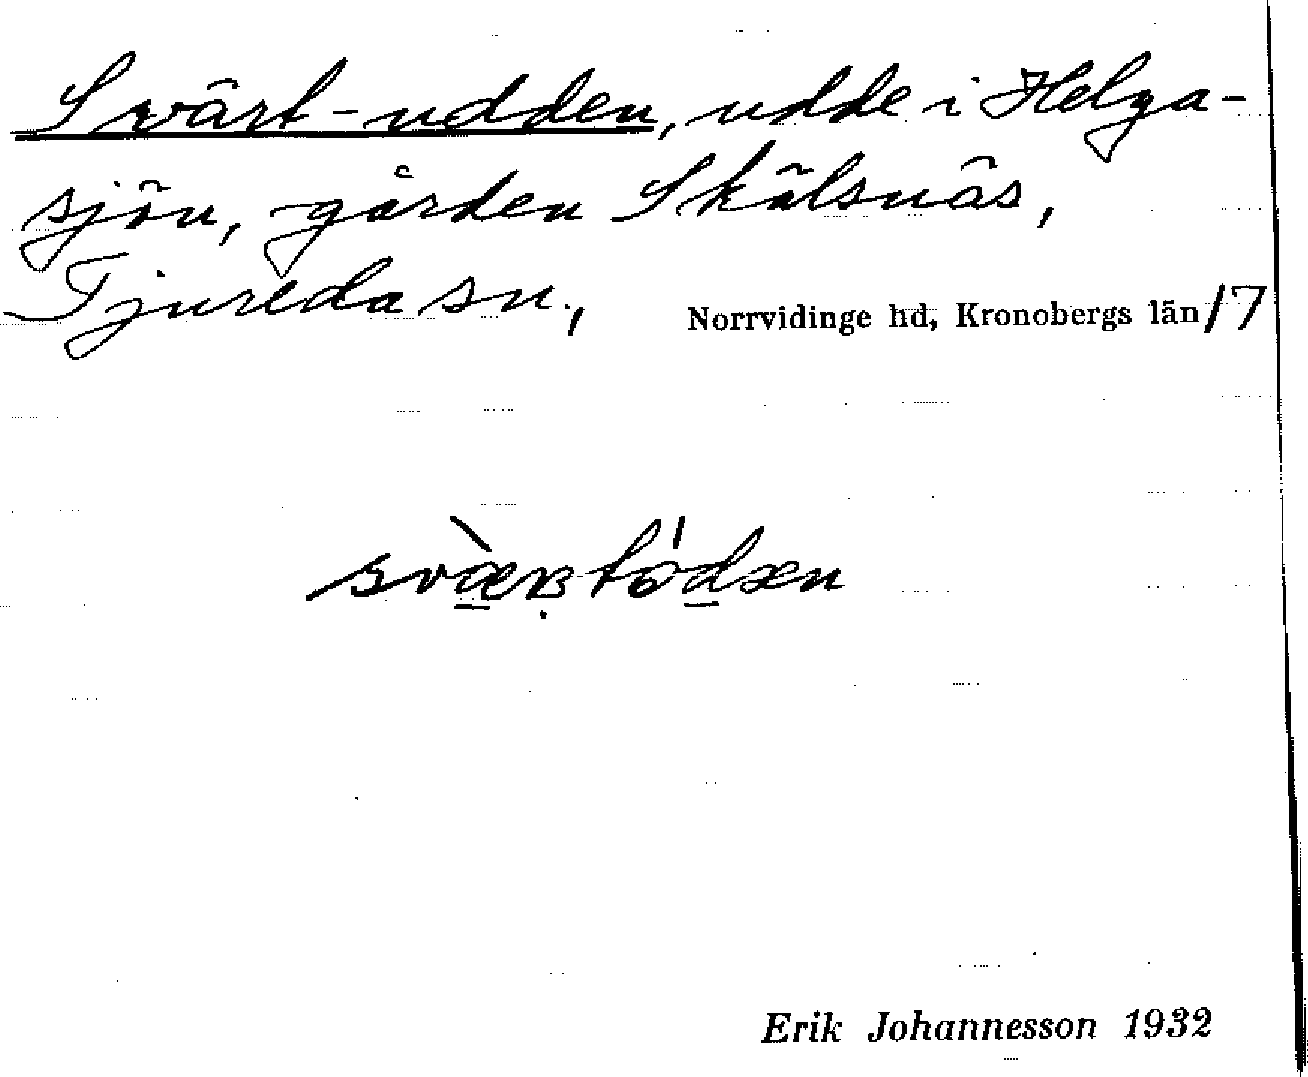 Svärt-udden, udde i Helga-
sjön, gården Skälsnäs,
Tjureda sn.,
Norrvidinge hd, Kronobergs län/7
Erik Johannesson 1932